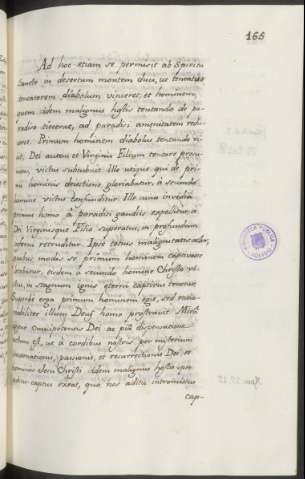 165
Ad hoc etiam se permisit ab Spiritu
Sancto in desertum montem duci, ut tentatus
tentatorem diabolum vinceret, et hominem,
quem idem malignus hostis tentando de pa-
radiso eiecerat, ad paradisi amoenitatem redu-
ceret. Primum hominem diabolus tentando vi-
cit. Dei autem et Virginis Filium tentare praesu-
mens, victus subcubuit. Ille utique qui de pri-
mi hominis deiectione gloriabatur, a secundo
homine victus confunditur. Ille inva
primum homo a paradisi gaudiis expellitur, a
Dei Virginisque Filio superatus, in profundum
retruditur. Ipse totius malignitatis
modis se, primum hominem captivasse
eodem a secundo homine Christo vi-
in stagnum ignis aeterni captivus tenetur
erga primum hominem egit, sed
illum Deus homo prostravit. Mira
omnipotentis Dei ac pia dispensatio
est, ut a cordibus nostris per mysterium
incarnationis, passionis, et resurrectionis Dei et
hominis Jesu Christi idem malignus hostis
captus exeat, quo nos aditu intromissus
cap-